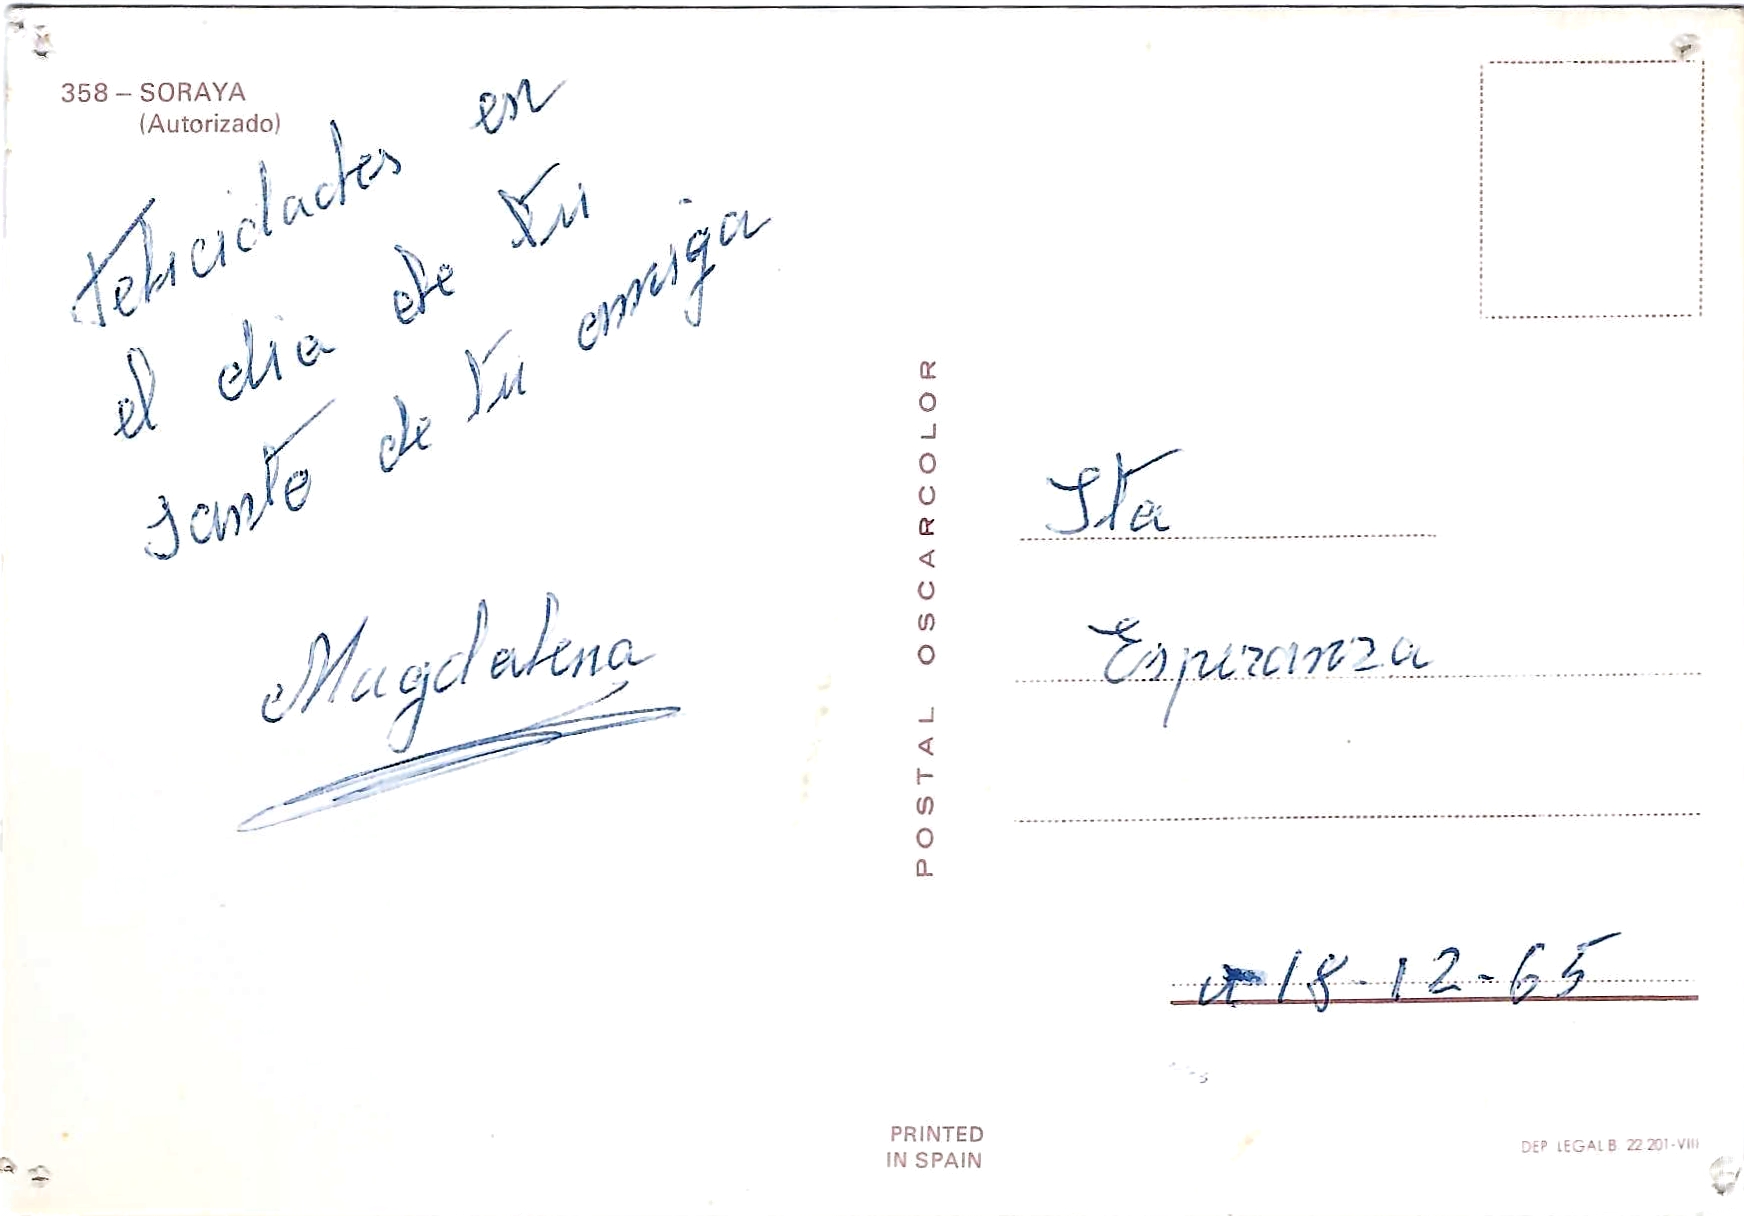 358 – SORAYA
(Autorizado)
Felicidades en
el dia de tu
santo de tu amiga
Magdalena
POSTAL OSCARCOLOR
Sta
Esperanza
a 18-12-65
PRINTED
IN SPAIN
DEP. LEGAL B. 22.201-VIII